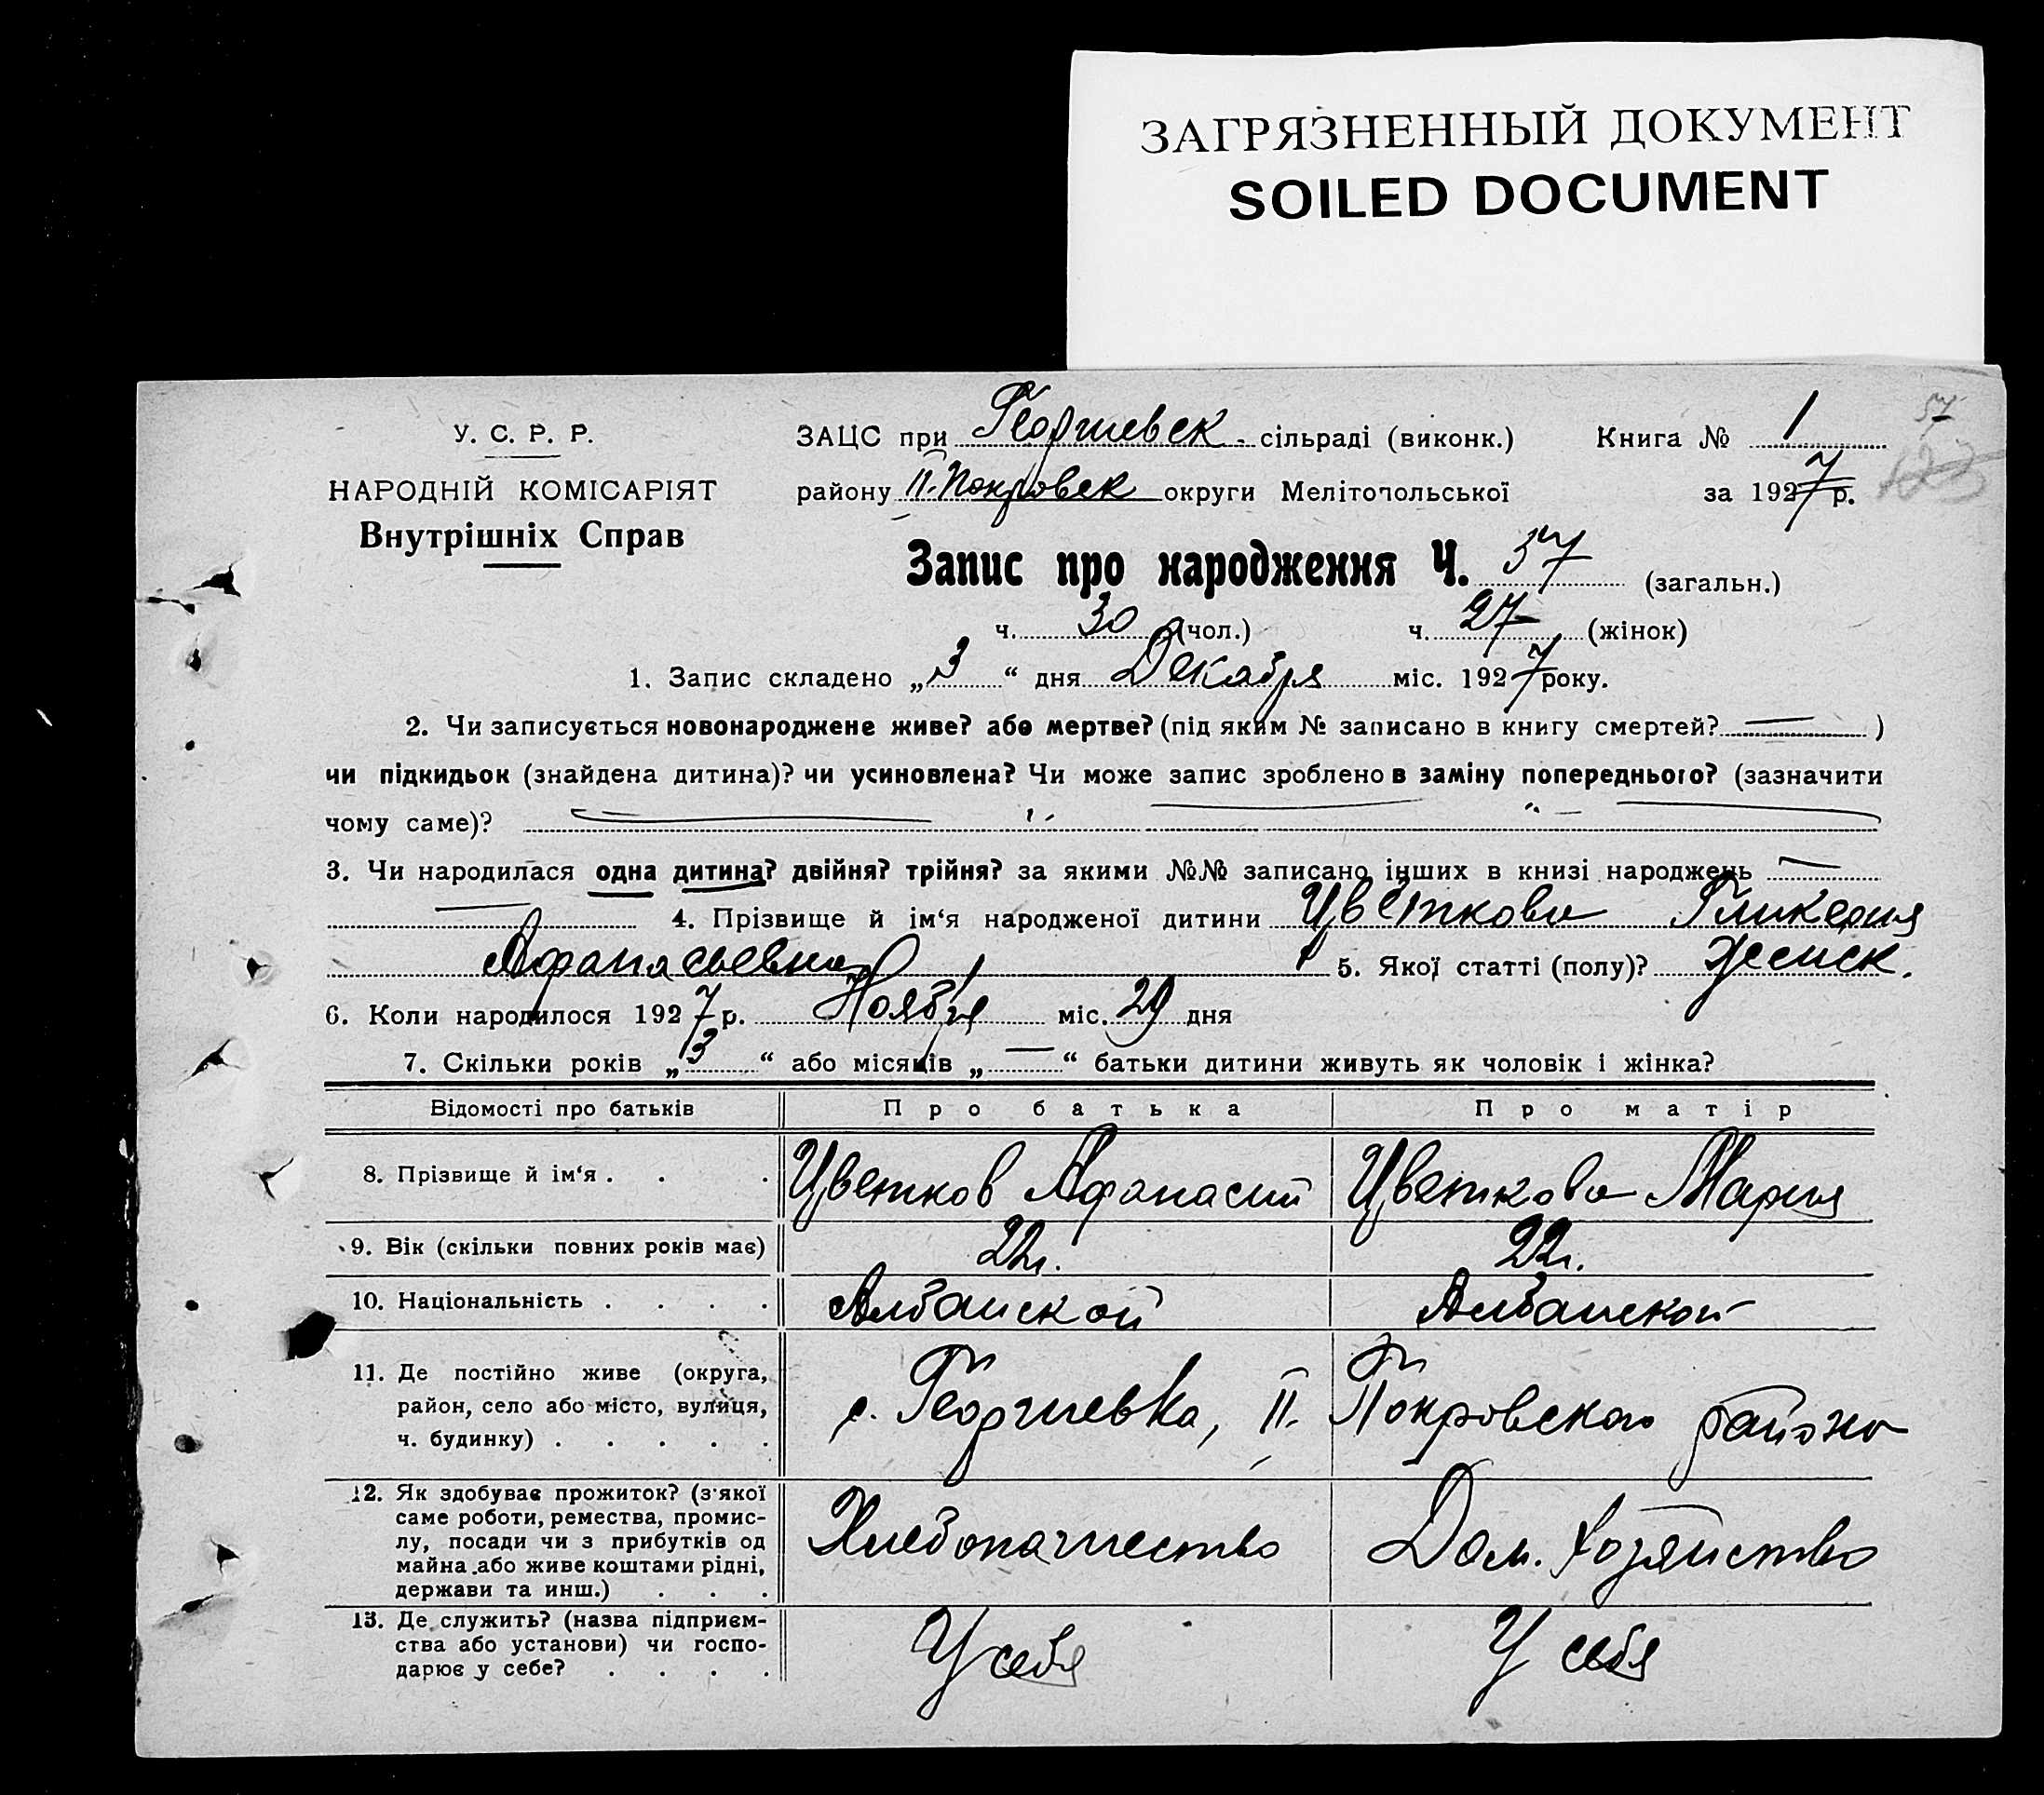 ЗАГРЯЗНЕННЫЙ ДОКУМЕНТ
SOILED DOCUMENT
57
У. С. Р. Р.
НАРОДНІЙ КОМІСАРІЯТ
Внутрішніх Справ
ЗАЦС при Георгиевск. сільраді (виконк.) Книга № 1
району П. Покровск округи Мелітопольської за 1927 р.
Запис про народження Ч. 57 (загальн.)
ч. 30 (чол.) ч. 27 (жінок)
1. Запис складено „3“ дня Декабря міс. 1927 року.
2. Чи записується новонароджене живе? або мертве? (під яким № записано в книгу смертей? — )
чи підкидьок (знайдена дитина)? чи усиновлена? Чи може запис зроблено в заміну попереднього? (зазначити
чому саме)?
3. Чи народилася одна дитина? двійня? трійня? за якими №№ записано інших в книзі народжень —
— 4. Прізвище й ім‘я народженої дитини Цветкова Гликерия
Афанасьевна 5. Якої статті (полу)? Женск.
6. Коли народилося 1927 р. Ноября міс. 29 дня
7. Скільки років „3“ або місяців „—“ батьки дитини живуть як чоловік і жінка?
Відомості про батьків Про батька Про матір
8. Прізвище й ім‘я . . . Цветков Афанасий Цветкова Мария
9. Вік (скільки повних років має) 22 г. 22 г.
10. Національність . . . . Албанской Албанской
11. Де постійно живе (округа,
район, село або місто, вулиця,
ч. будинку) . . . . .
с. Георгиевка, П. Покровского района
12. Як здобуває прожиток? (з якої
саме роботи, ремества, промис-
лу, посади чи з прибутків од
майна або живе коштами рідні,
держави та инш.) . . .
Хлебопашество Дом. хозяйство
13. Де служить? (назва підприєм-
ства або установи) чи госпо-
дарює у себе? . . . .
У себя У себя